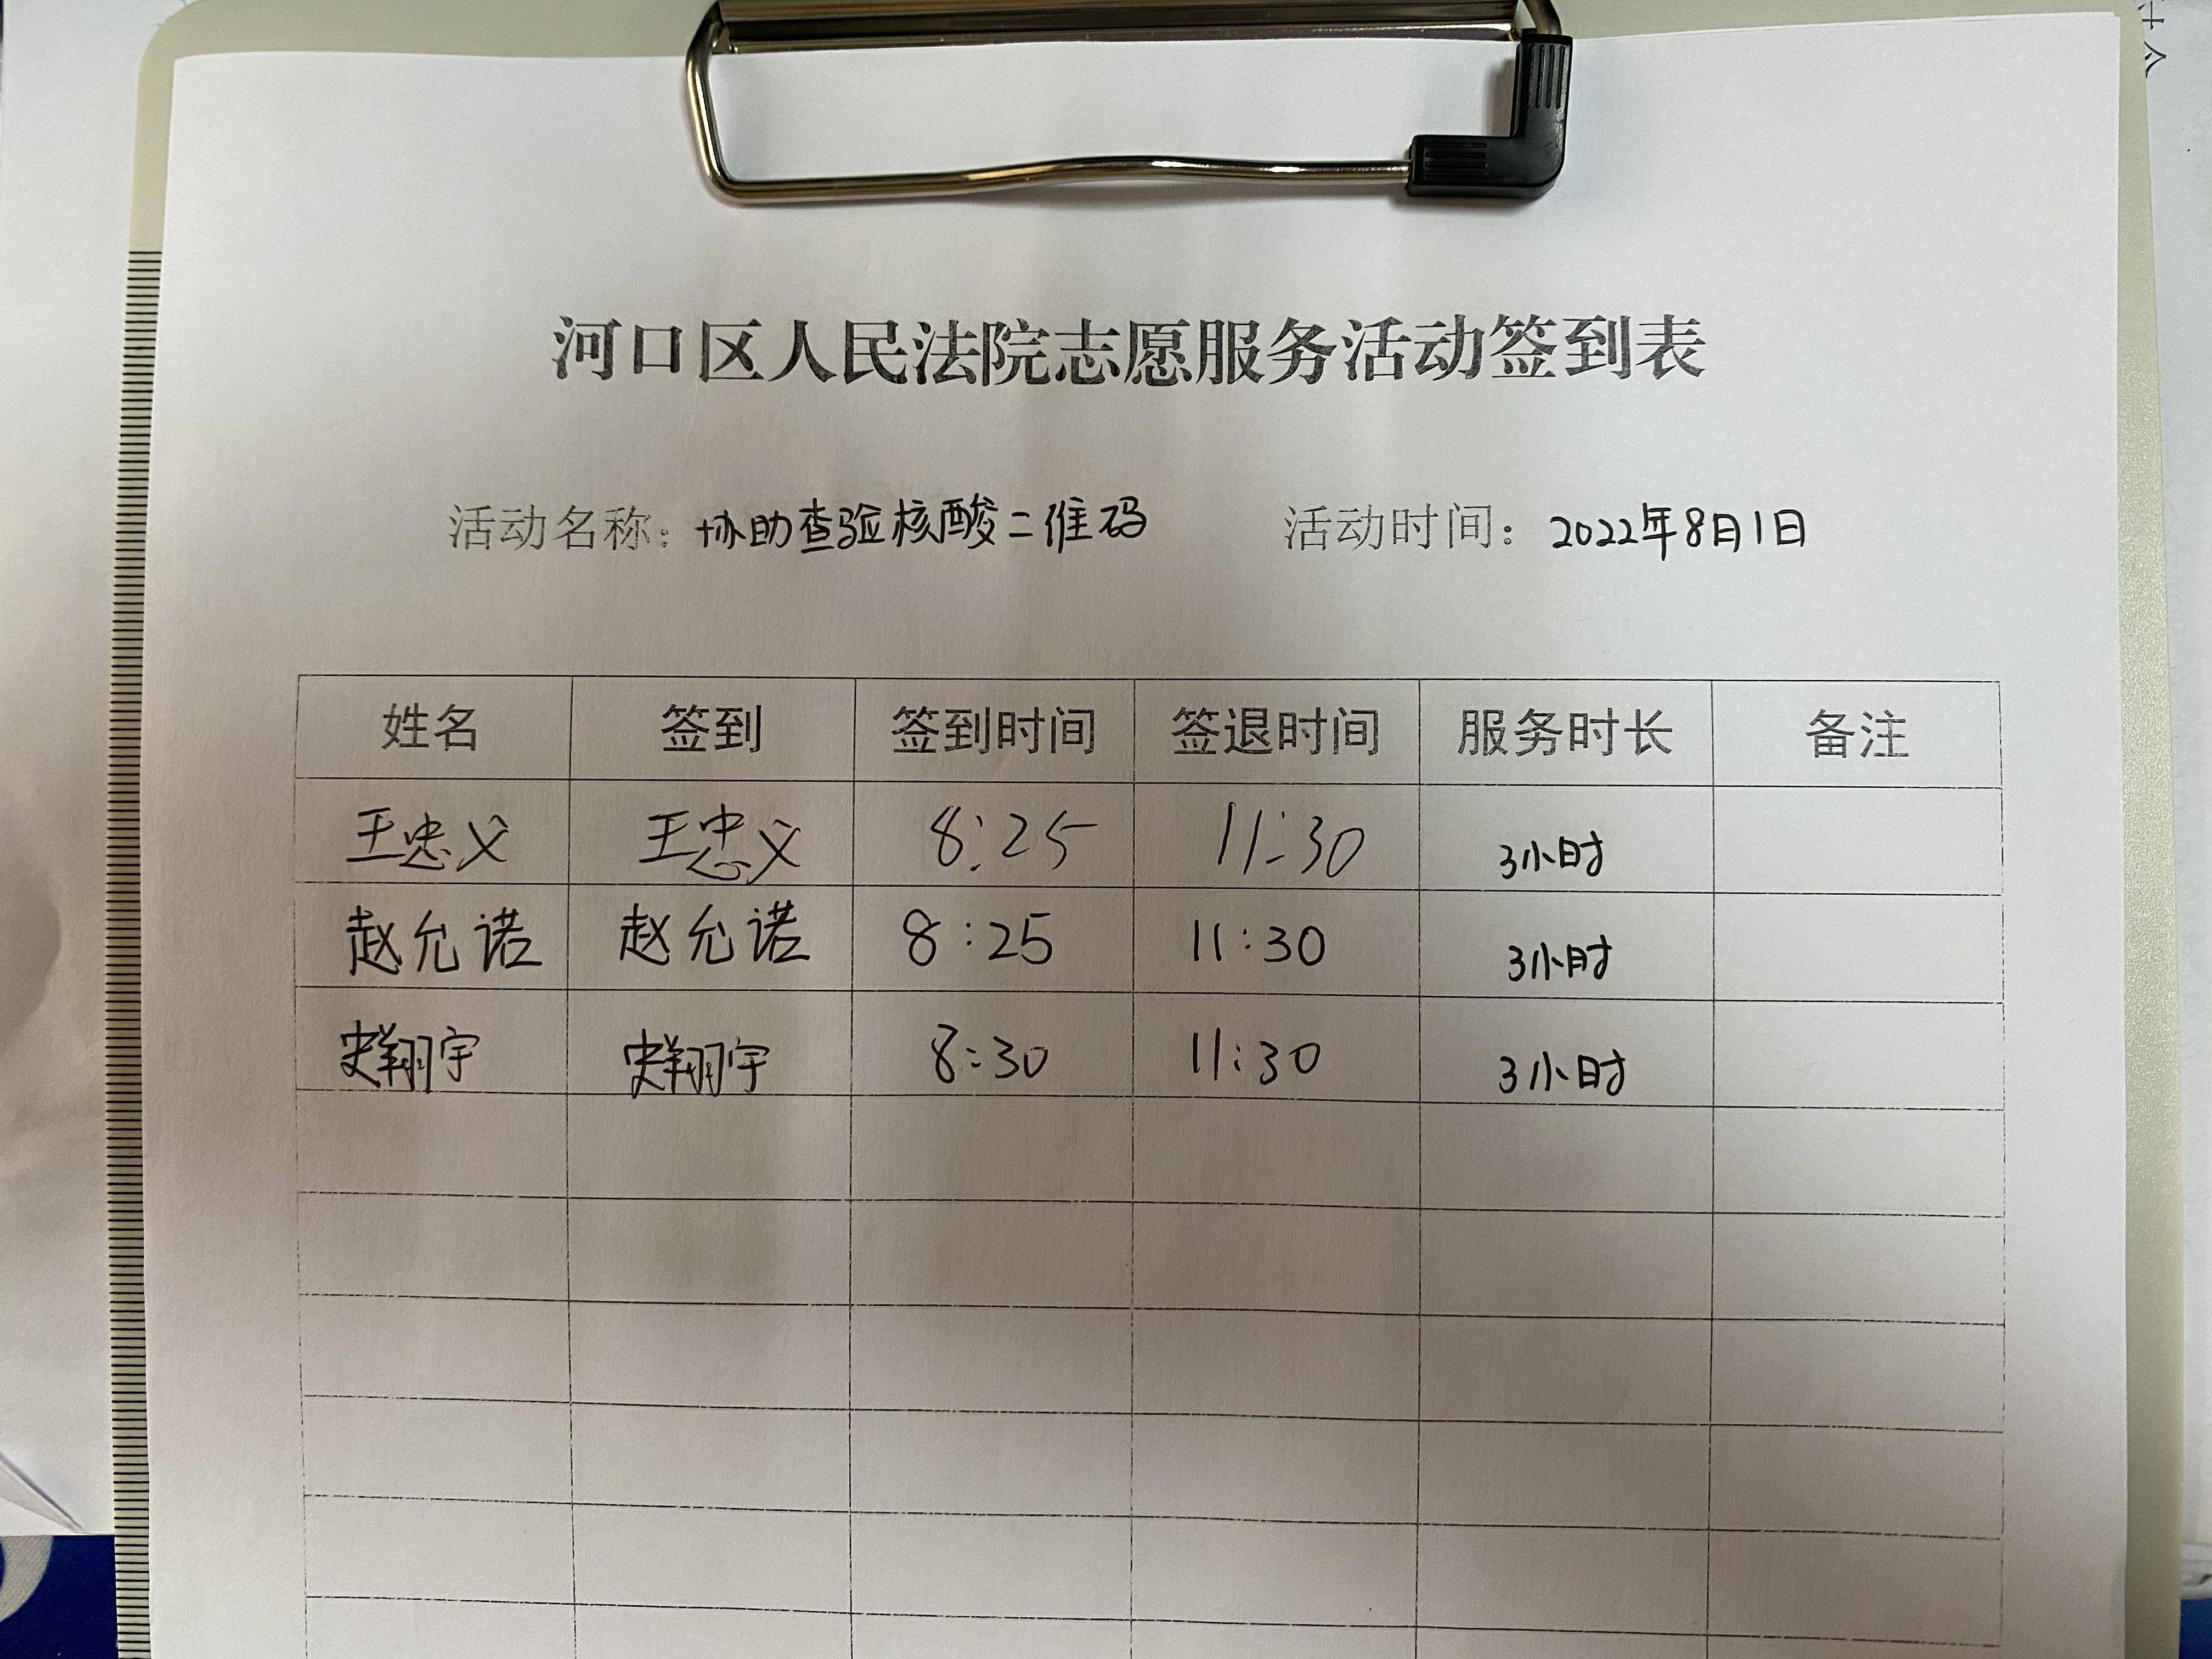 河口区人民法院志愿服务活动签到表
活动名称：协助查验核酸二维码 活动时间：2022年8月1日
姓名 签到 签到时间 签退时间 服务时长 备注
王忠义 王忠义 8:25 11:30 3小时
赵允诺 赵允诺 8:25 11:30 3小时
史翔宇 史翔宇 8:30 11:30 3小时